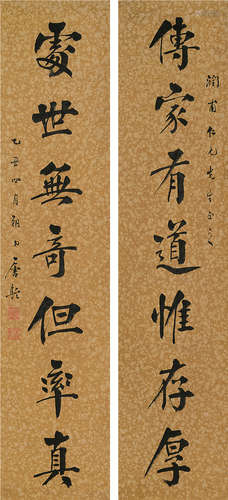 潤甫仁兄先生正之
傳家有道惟存厚
處世無奇但率真
乙丑四月朔日唐駝